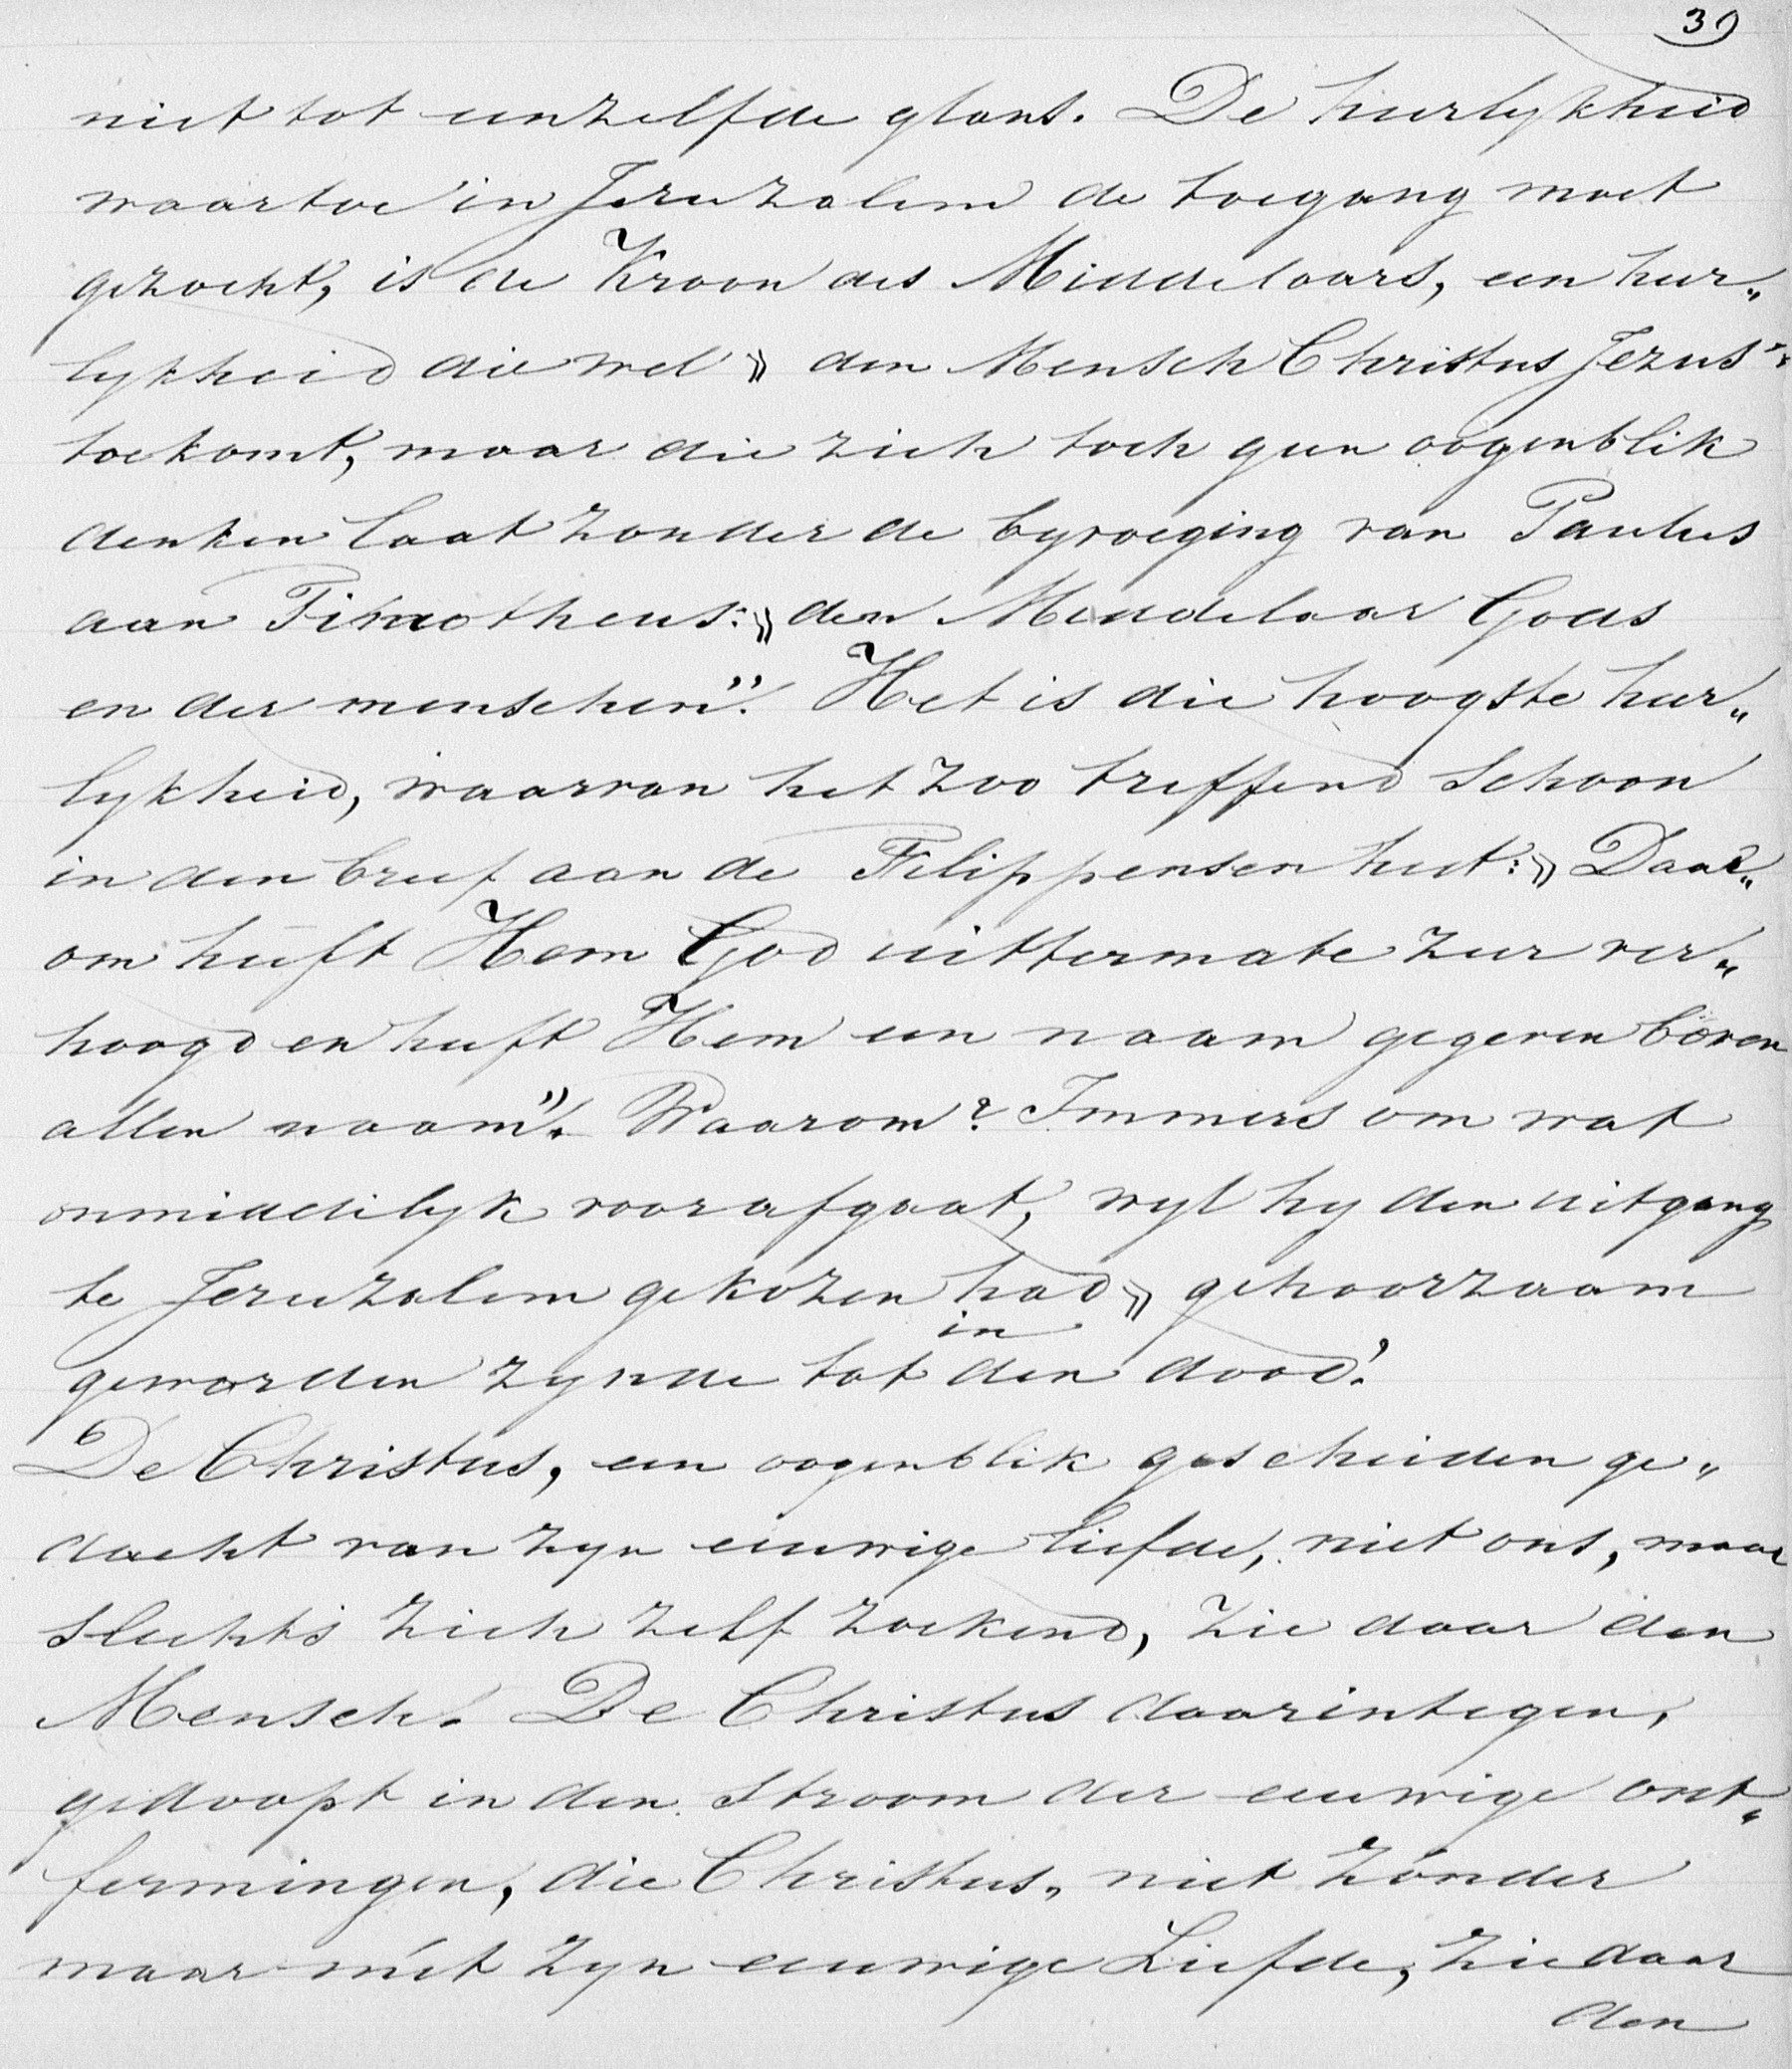 39
niet tot eenzelfde glans. De heerlykheid
waartoe in Jeruzalem de toegang moet
gezocht, is de Kroon des Middelaars, een heer„
lykheid die wel „den Mensch Christus Jezus"
toekomt, maar die zich toch geen oogenblik
denken laat zonder de byvoeging van Paulus
aan Timotheus: „den Middelaar Gods
en der menschen". Het is die hoogste heer„
lykheid, waarvan het zoo treffend schoon
in den brief aan de Filippensen heet: „Daar„
om heeft Hem God uittermate zeer ver„
hoogd en heeft Hem een naam gegeven boven
allen naam". Waarom? Immers om wat
onmiddelijk voorafgaat, wyl hy den uitgang
te Jeruzalem gekozen had „gehoorzaam
geworden zynde tot in den dood".
De Christus, een oogenblik gescheiden ge„
dacht van zyn eeuwige liefde, niet ons, maar
slechts zich zelf zoekend, zie daar den
Mensch. De Christus daarintegen,
gedoopt in den stroom der eeuwige ont„
fermingen, die Christus, niet zonder
maar mét zyn eeuwige Liefde, zie daar
den